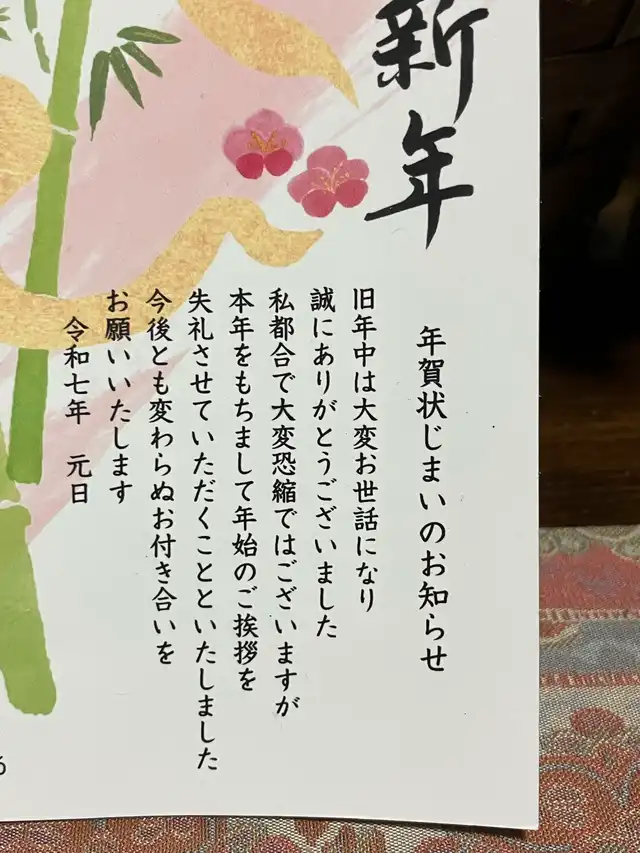 新年
年賀状じまいのお知らせ
旧年中は大変お世話になり
誠にありがとうございました
私都合で大変恐縮ではございますが
本年をもちまして年始のご挨拶を
失礼させていただくことといたしました
今後とも変わらぬお付き合いを
お願いいたします
令和七年 元日